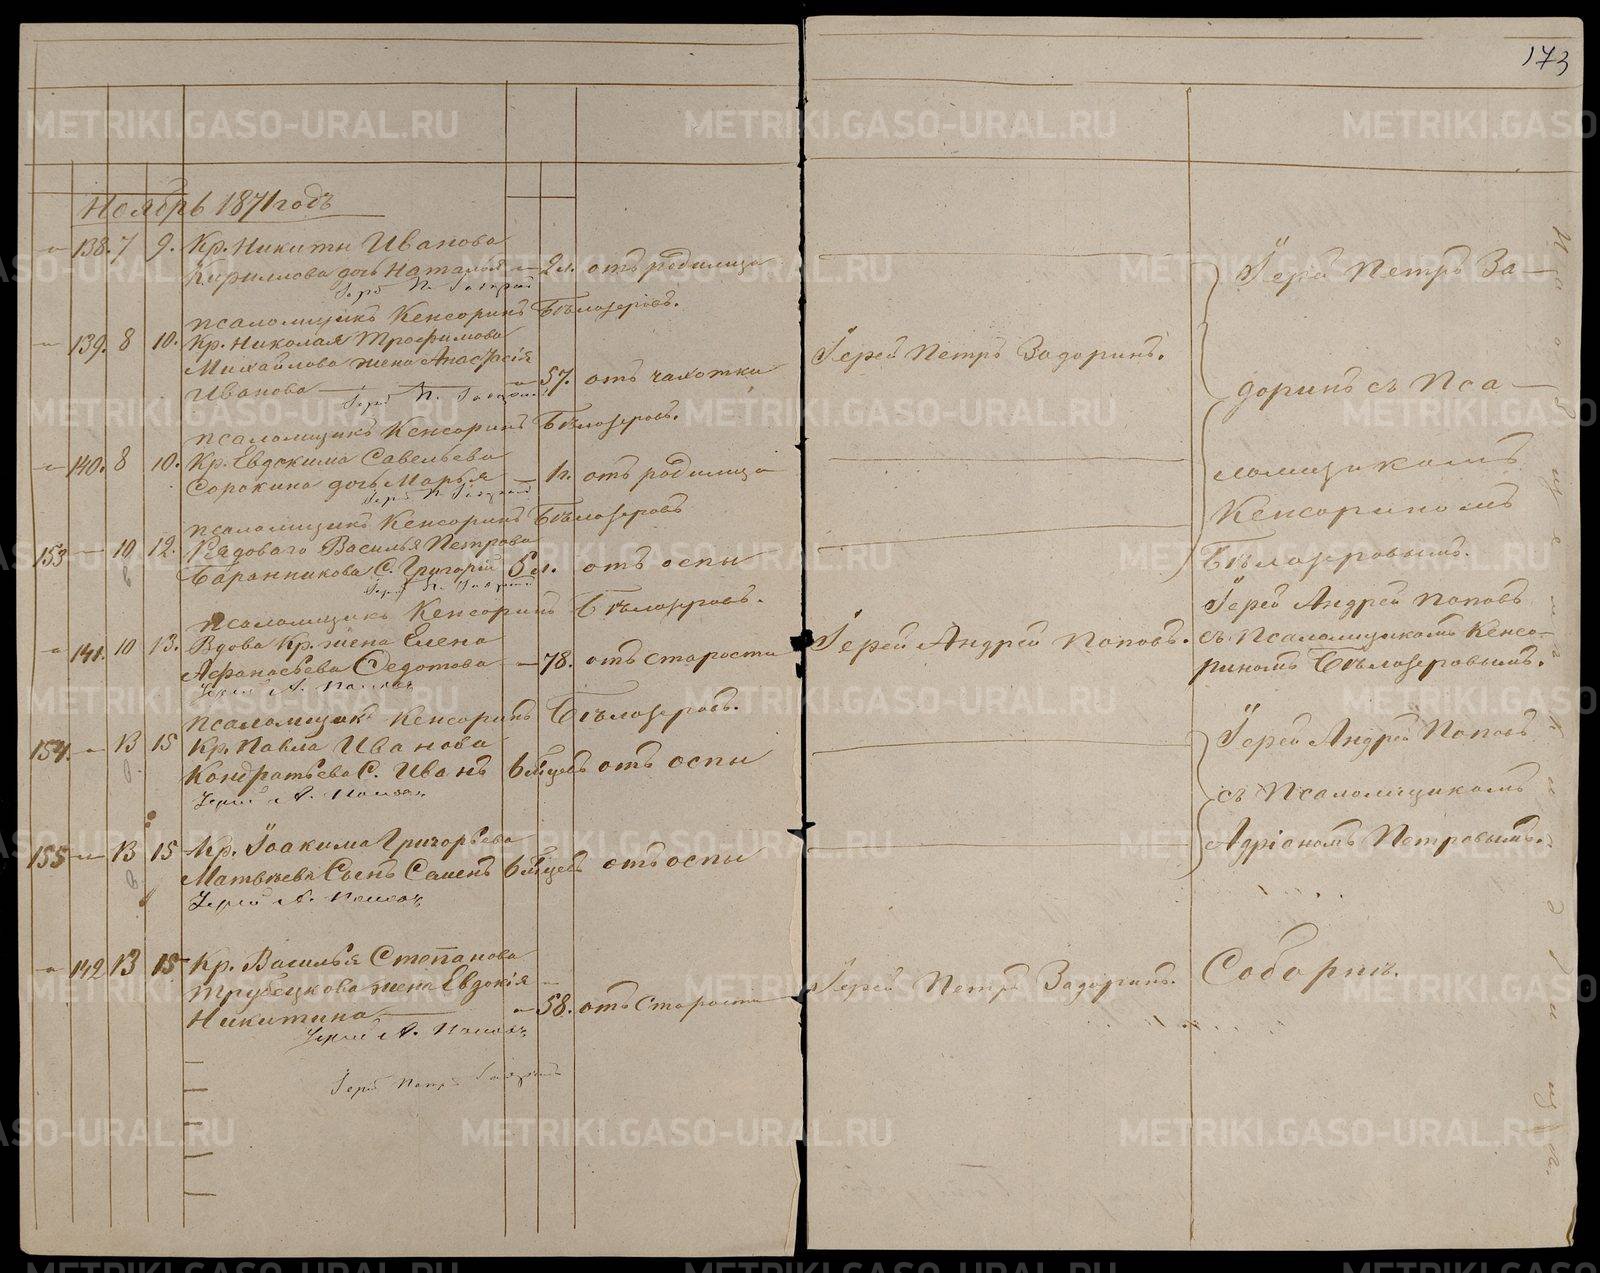 173
Ноябрь 1871 годъ
138. 7 9. Кр. Никиты Иванова
Кириллова дочь Наталья 2 л. отъ родимца
псаломщикъ Кенсоринъ Бѣлозеровъ.
139. 8 10. Кр. Николая Трофимова
Михайлова жена Анастасія
Иванова 57. отъ чахотки
псаломщикъ Кенсоринъ Бѣлозеровъ.
140. 8 10. Кр. Евдокима Савельева
Сорокина дочь Марья отъ родимца
псаломщикъ Кенсоринъ Бѣлозеровъ
153 10 12. Рядоваго Василья Петрова
Баранникова С. Григорій 6 л. отъ оспы
псаломщикъ Кенсоринъ Бѣлозеровъ.
141. 10 13. Вдова Кр. жена Елена
Афанасьева Федотова 78. отъ старости
Іерей А. Поповъ
псаломщикъ Кенсоринъ Бѣлозеровъ.
154. 13 15 Кр. Павла Иванова
Кондратьева С. Иванъ 6 мѣсцевъ отъ оспы
Іерей А. Поповъ
155 13 15 Кр. Іоакима Григорьева
Матвѣева Сынъ Семенъ 6 мѣсцевъ отъ оспы
Іерей А. Поповъ
142 13 15 Кр. Василья Степанова
Трубецкова жена Евдокія
Никитина 58. отъ старости
Іерей А. Поповъ
Іерей Петръ Задоринъ
Іерей Петръ Задоринъ.
Іерей Андрей Поповъ.
Іерей Петръ Задоринъ.
Іерей Петръ За-
доринъ съ Пса-
ломщикомъ
Кенсориномъ
Бѣлозеровымъ.
Іерей Андрей Поповъ
съ Псаломщикомъ Кенсо-
риномъ Бѣлозеровымъ.
Іерей Андрей Поповъ
съ Псаломщикомъ
Адріаномъ Петровымъ.
Соборнъ.
METRIKI.GASO-URAL.RU